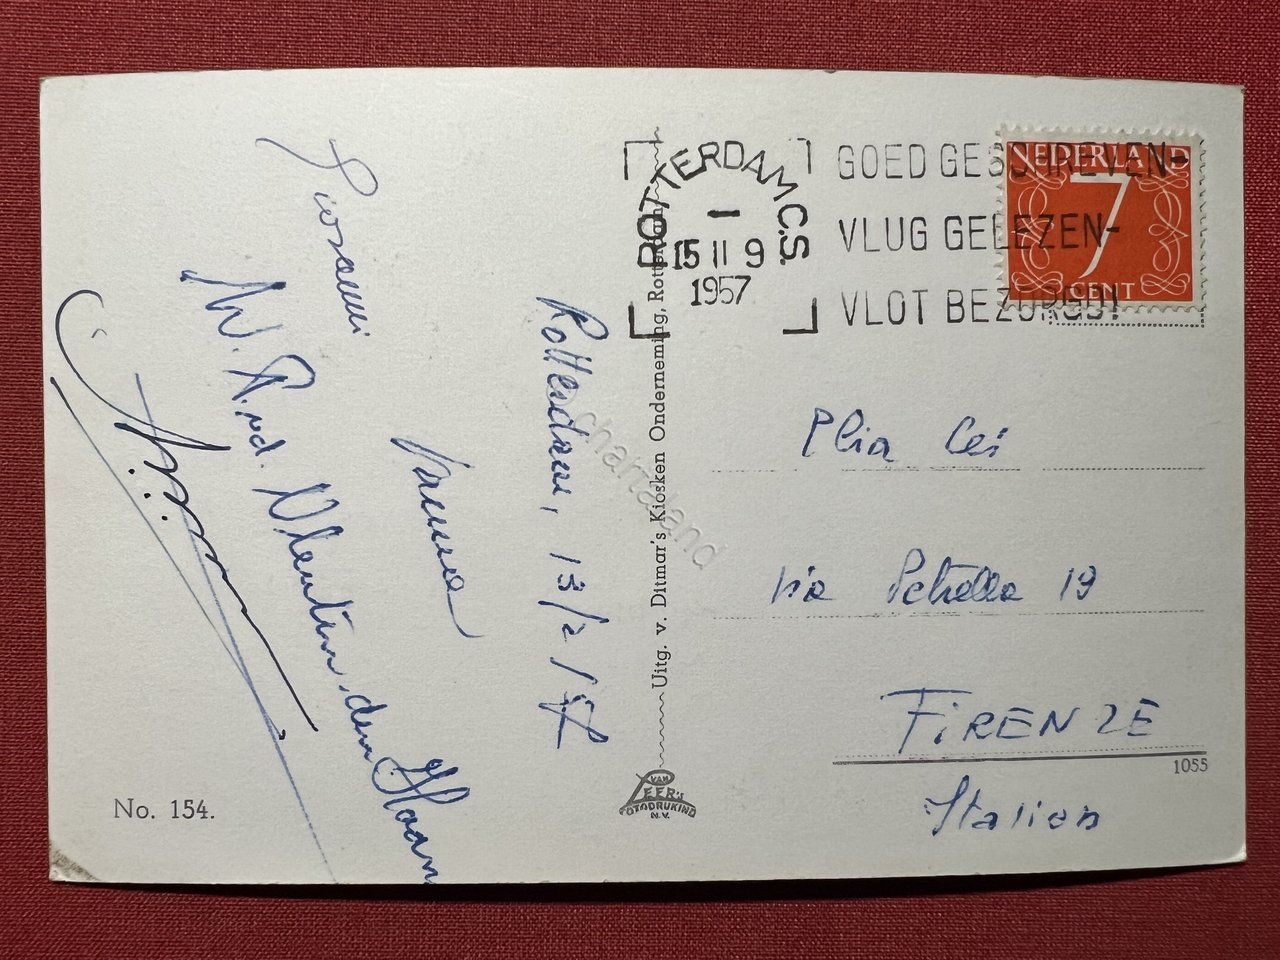 ROTTERDAM C.S.
I
15 II 9
1957
GOED GESCHREVEN-
VLUG GELEZEN-
VLOT BEZORGD!
NEDERLAND
7
CENT
Rotterdam, 13/2/57
Giovanni
W. R. v.d.
den Haan
Uitg. v. Ditmar's Kiosken Onderneming, Rotterdam
chartaland
via 19
FIRENZE
Italien
1055
No. 154.
VAN
LEER's
FOTODRUKIND
N.V.